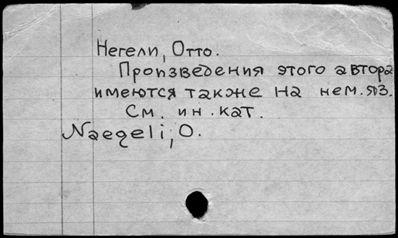 Негели, Отто.
Произведения этого автора
имеются также на нем.яз.
См. ин. кат.
Naegeli, O.